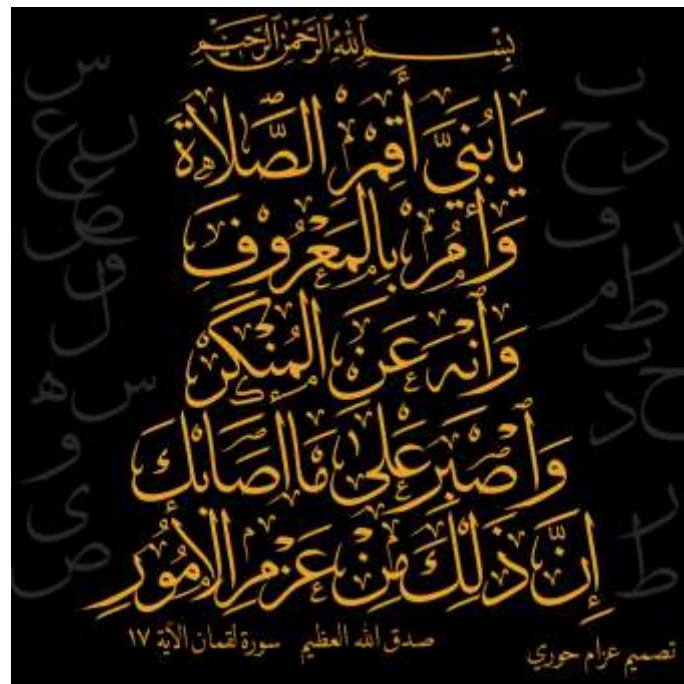 بِسْمِ ٱللَّهِ ٱلرَّحْمَٰنِ ٱلرَّحِيمِ
يَا بُنَيَّ أَقِمْ الصَّلَاةَ
وَأْمُرْ بِالمَعْرُوفِ
وَٱنْهَ عَنْ المُنْكَرْ
وَٱصْبِرْ عَلَى مَا اصَابَكَ
إِنَّ ذَلِكَ مِنْ عَزْمِ الامُورِ
صدق الله العظيم سورة لقمان الآية ١٧
تصميم عزام حوري